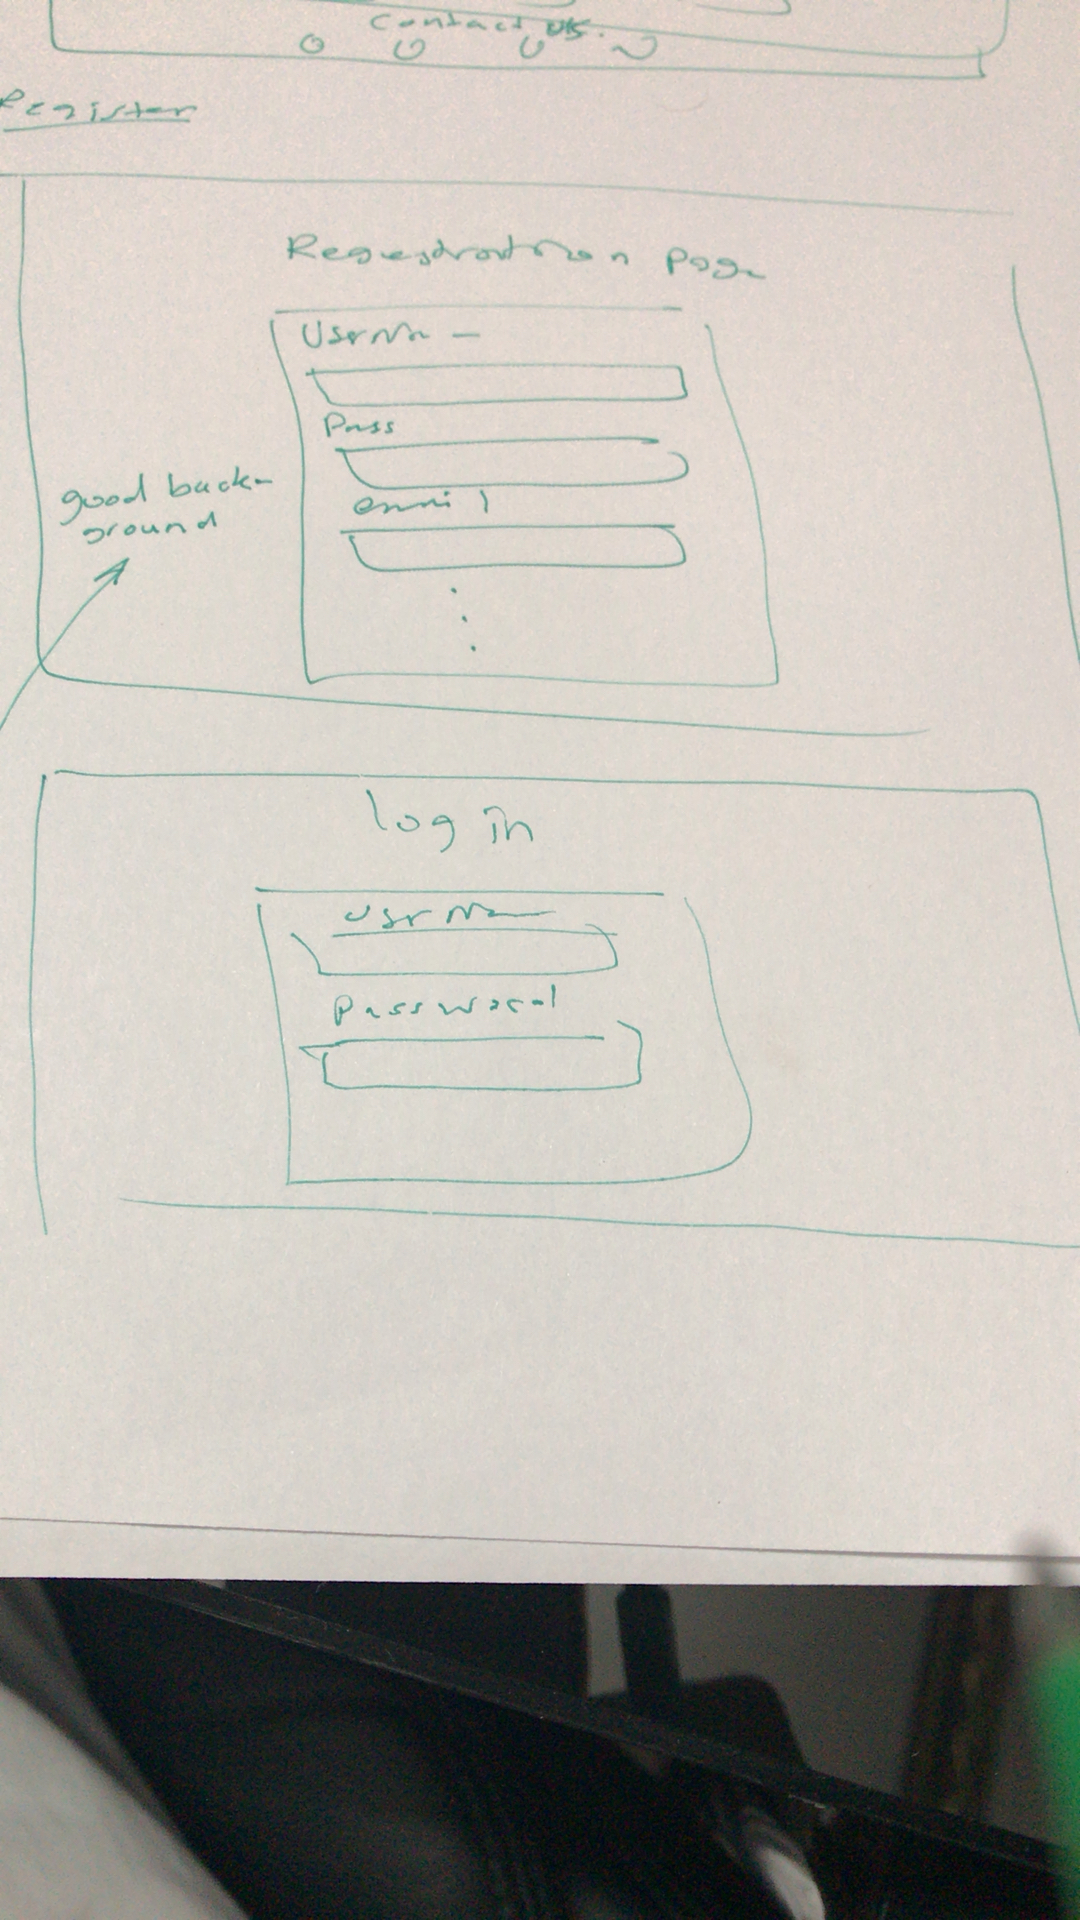 Contact us.
Register
Regestration page
User Na
Pass
email
good back-
ground
log in
User Na
Password